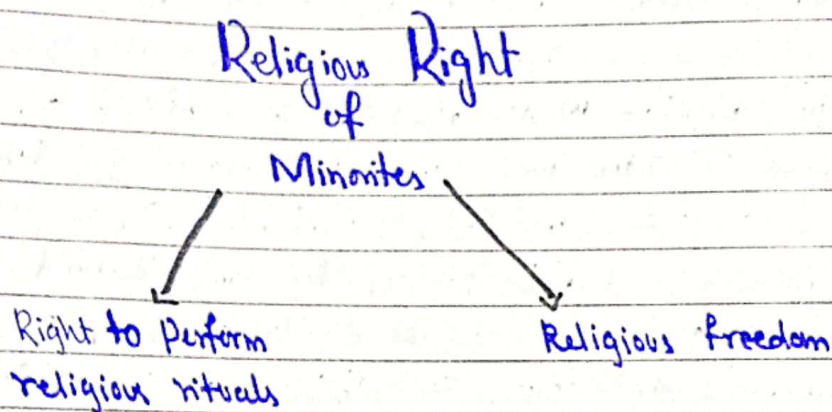 Religious Right
of
Minorites
Right to Perform
religious rituals
Religious freedom